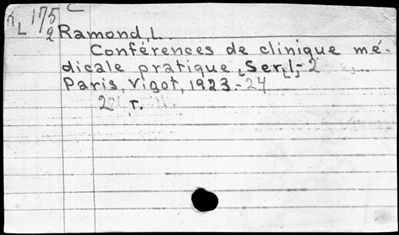 RL 175 C
2 Ramond, L.
Conférences de clinique mé-
dicale pratique, Ser. 1-2
Paris, Vigot, 1923.-24
2 т.